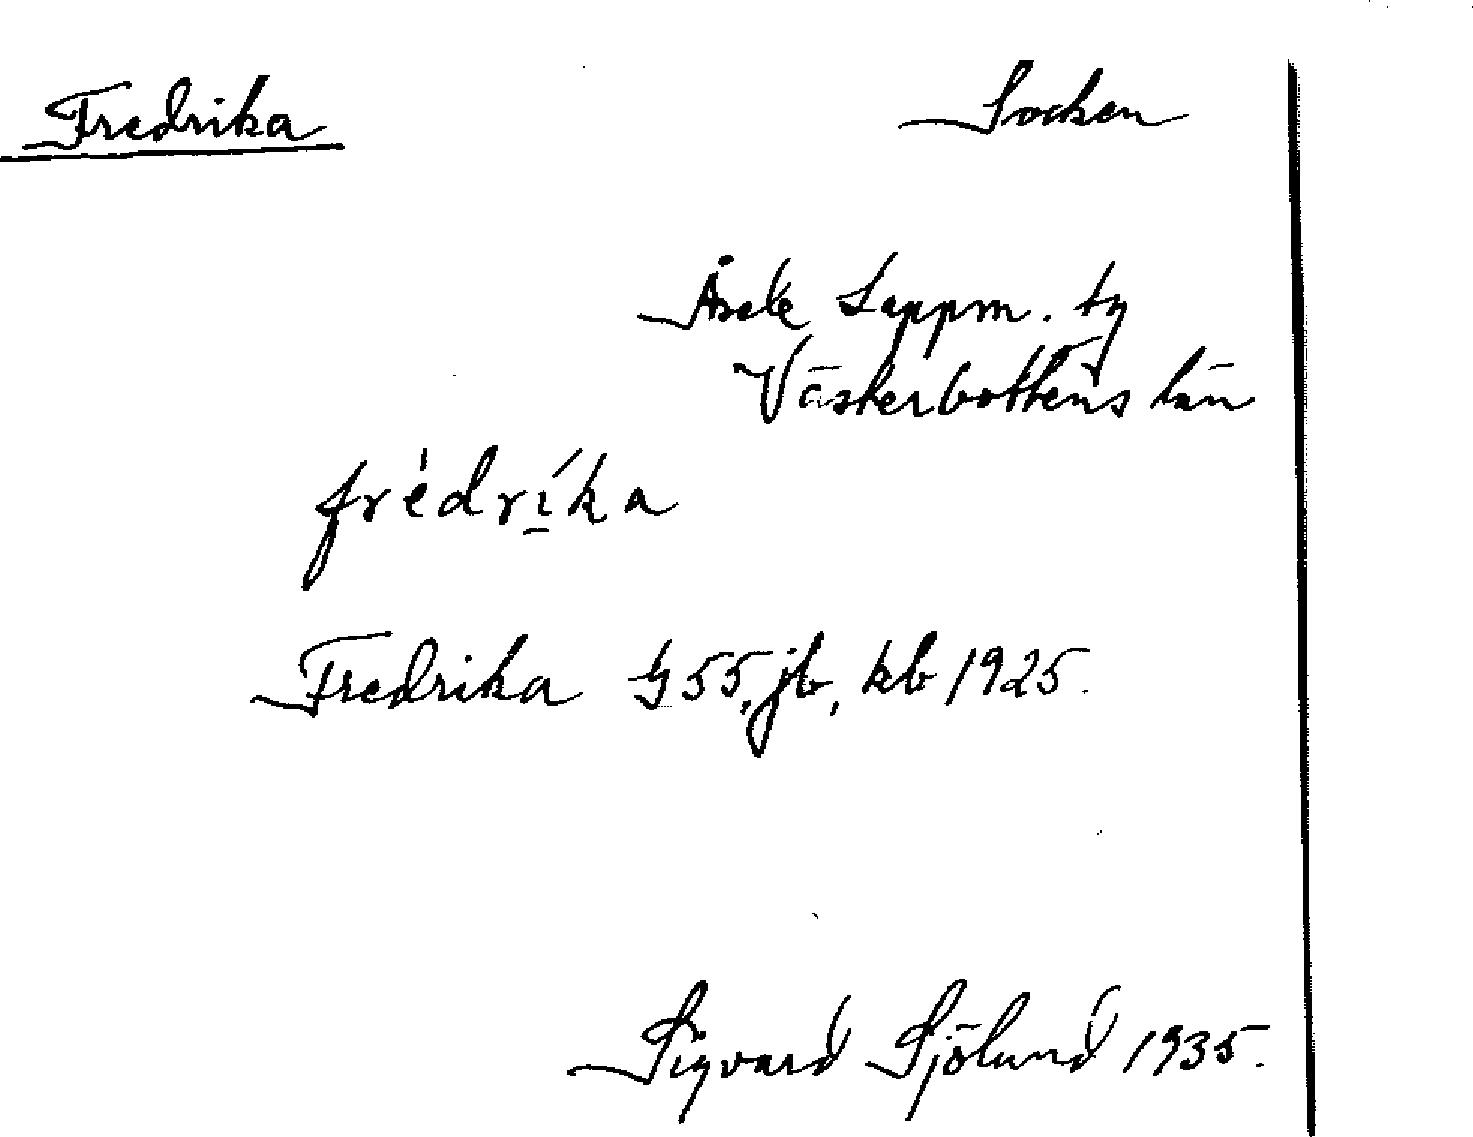 Fredrika Socken
Åsele Lappm. tg
Västerbottens län
frèdrí̱ka
Fredrika G 55, jb, kb 1925.
Sigvard Sjölund 1935.